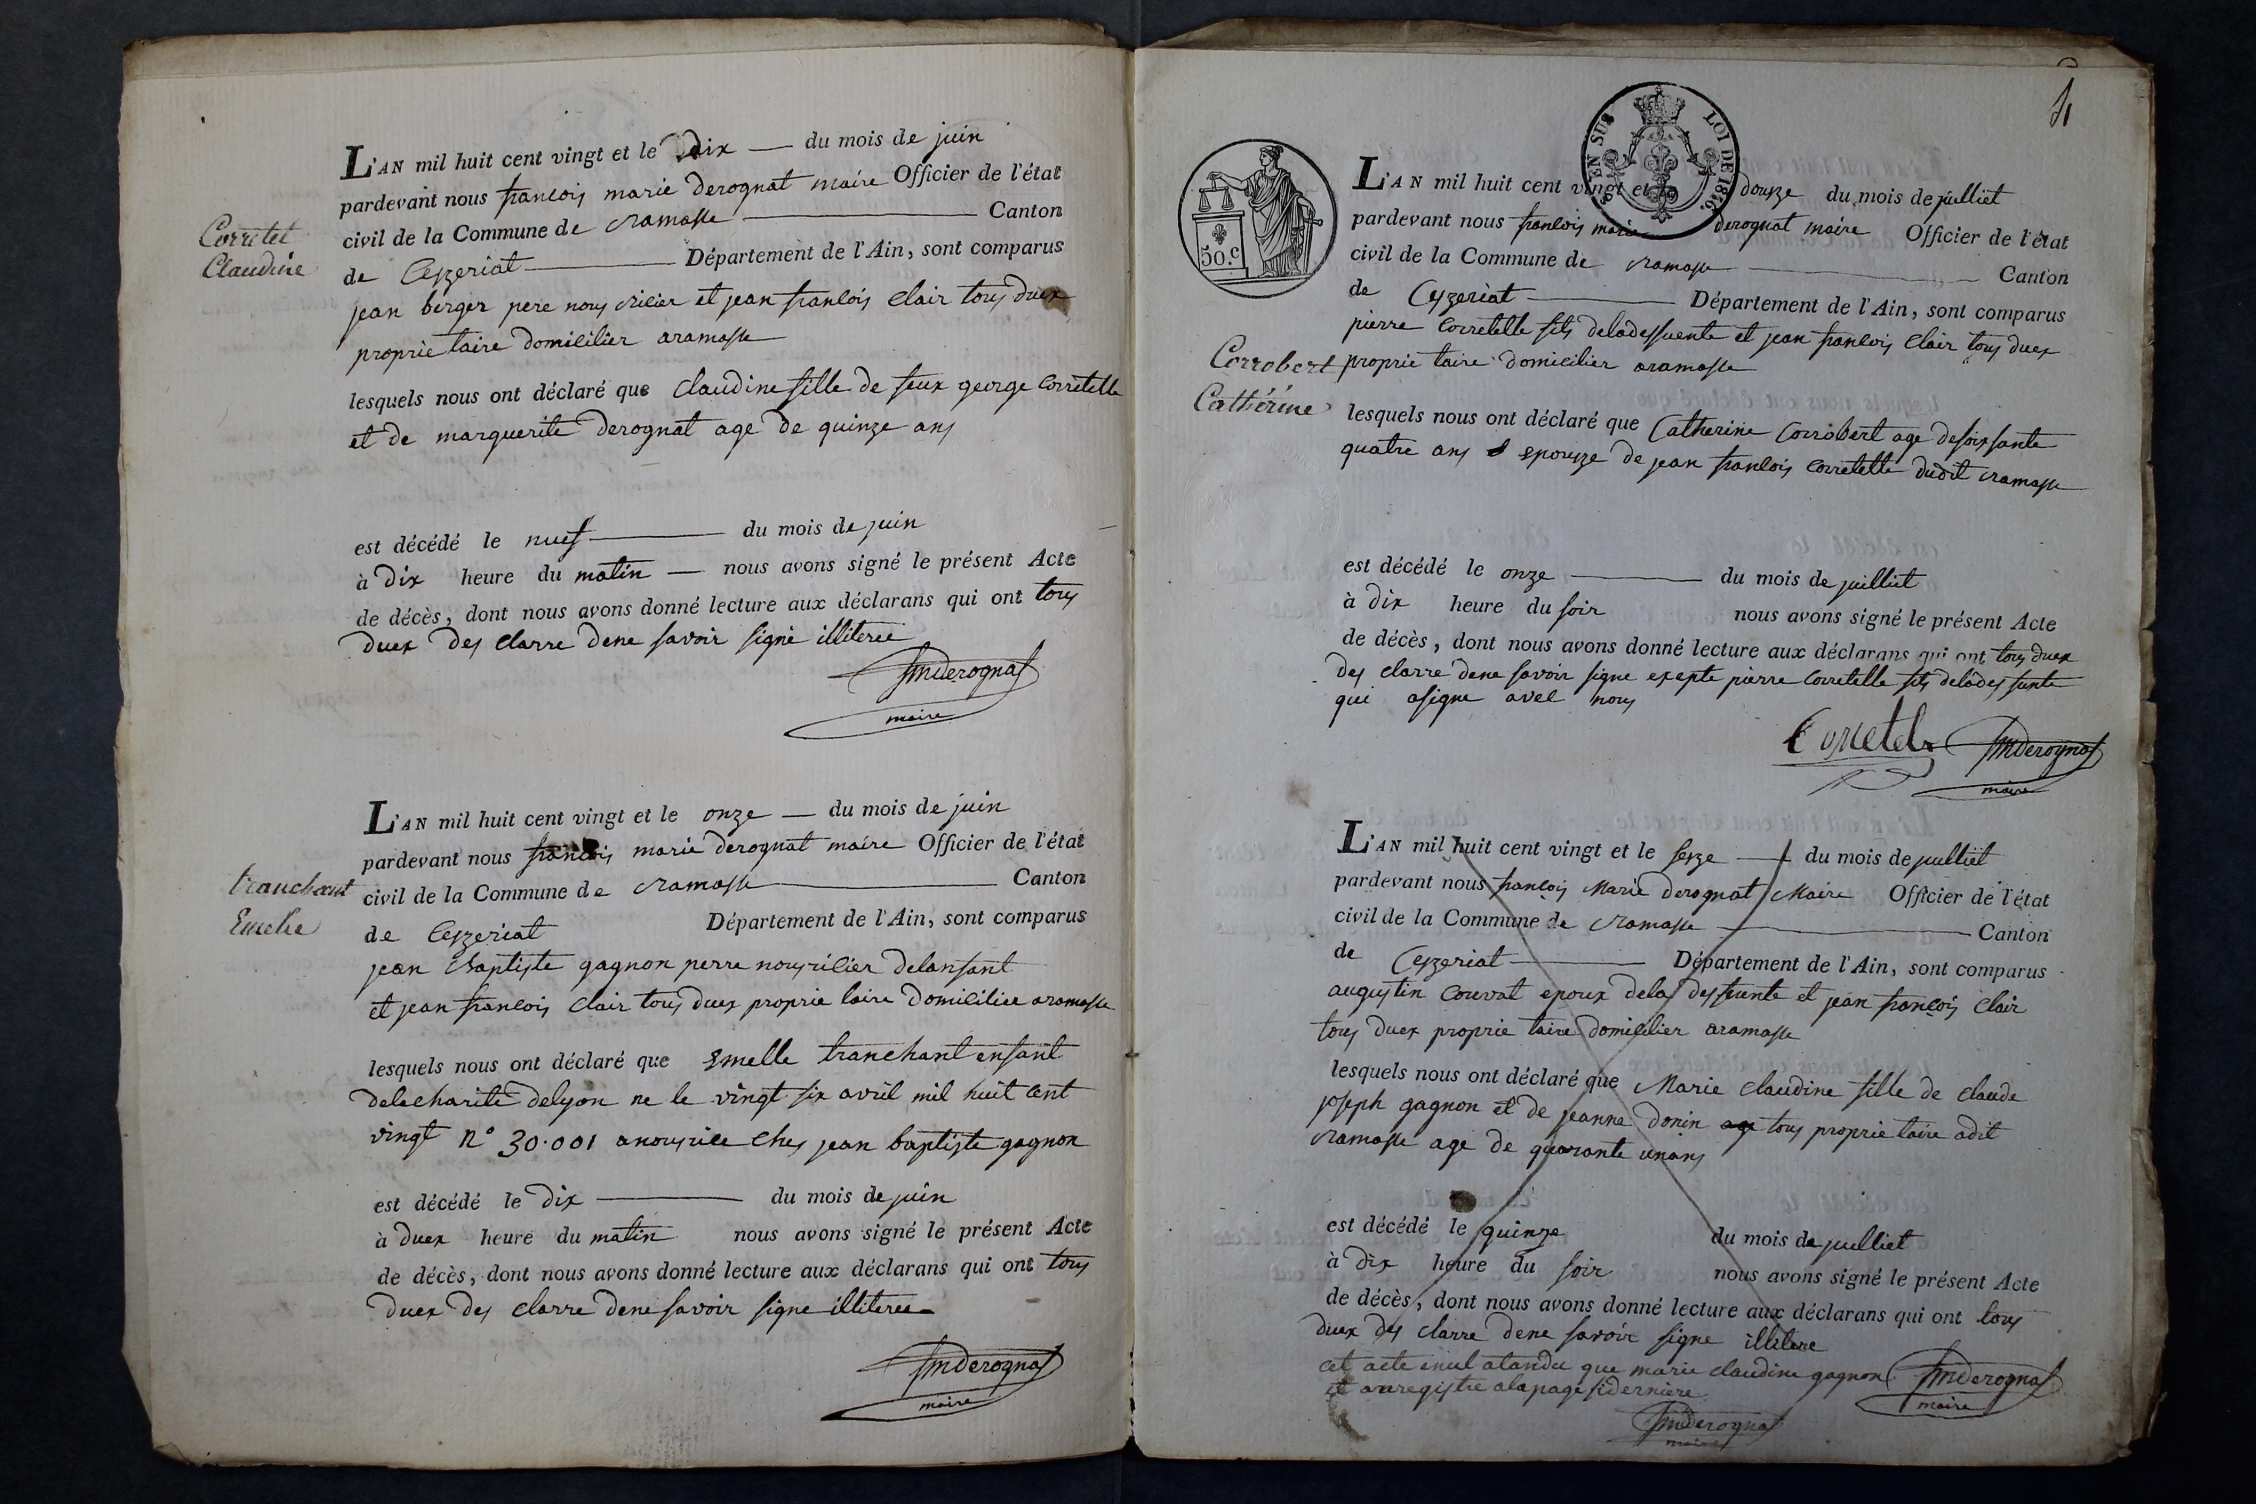 L'AN mil huit cent vingt et le dix — du mois de juin
pardevant nous francois marie derognat maire Officier de l'état
civil de la Commune de ramasse Canton
de Ceyzeriat Département de l'Ain, sont comparus
jean berger pere nouricier et jean francois Clair tous duex
proprietaire domicilier aramasse
Corretel
Claudine
lesquels nous ont déclaré que Claudine fille de feux george Corretelle
et de marguerite derognat age de quinze ans
est décédé le nuef du mois de juin
à dix heure du matin — nous avons signé le présent Acte
de décès, dont nous avons donné lecture aux déclarans qui ont tous
duex des clarre dene savoir signé illiteree
fmderognat
maire
L'AN mil huit cent vingt et le onze — du mois de juin
pardevant nous francois marie derognat maire Officier de l'état
civil de la Commune de ramasse Canton
de Ceyzeriat Département de l'Ain, sont comparus
jean Baptiste gagnon perre nouricier delanfant
et jean francois Clair tous duex proprietaire domicilier aramasse
tranchant
Emelie
lesquels nous ont déclaré que Emelle tranchant enfant
delacharité delyon ne le vingt six avril mil huit cent
vingt n° 30.001 anourice ches jean baptiste gagnon
est décédé le dix du mois de juin
à duex heure du matin nous avons signé le présent Acte
de décès, dont nous avons donné lecture aux déclarans qui ont tous
duex des clarre dene savoir signe illiteree
fmderognat
maire
4
EN SUS LOI DE 1816.
50.c
L'AN mil huit cent vingt et le douze du mois de julliet
pardevant nous francois marie derognat maire Officier de l'état
civil de la Commune de ramasse Canton
de Ceyzeriat Département de l'Ain, sont comparus
pierre Corretelle fils deladessuente et jean francois Clair tous duex
proprietaire domicilier aramasse
Corrobert
Cathérine
lesquels nous ont déclaré que Catherine Corrobert age desoixsante
quatre ans epouze de jean francois Corretelle dudit ramasse
est décédé le onze du mois de juilliet
à dix heure du soir nous avons signé le présent Acte
de décès, dont nous avons donné lecture aux déclarans qui ont tous duex
des clarre dene savoir signe exepte pierre Corretelle fils deladesfunte
qui asigne avec nous
Corretel fmderognat
maire
L'AN mil huit cent vingt et le seize du mois de julliet
pardevant nous francois Marie derognat Maire Officier de l'état
civil de la Commune de ramasse Canton
de Ceyzeriat Département de l'Ain, sont comparus
augustin Couvat epoux dela desfuente et jean francois Clair
tous duex proprietaire domicilier aramasse
lesquels nous ont déclaré que Marie Claudine fille de Claude
joseph gagnon et de jeanne donin tous proprietaire adit
ramasse age de quarante unans
est décédé le quinze du mois de julliet
à dix heure du soir nous avons signé le présent Acte
de décès, dont nous avons donné lecture aux déclarans qui ont tous
duex des clarre dene savoir signe illitere
cet acte enul atandu que marie claudine gagnon fmderognat
et anregistre alapage sidernière maire
fmderognat
maire